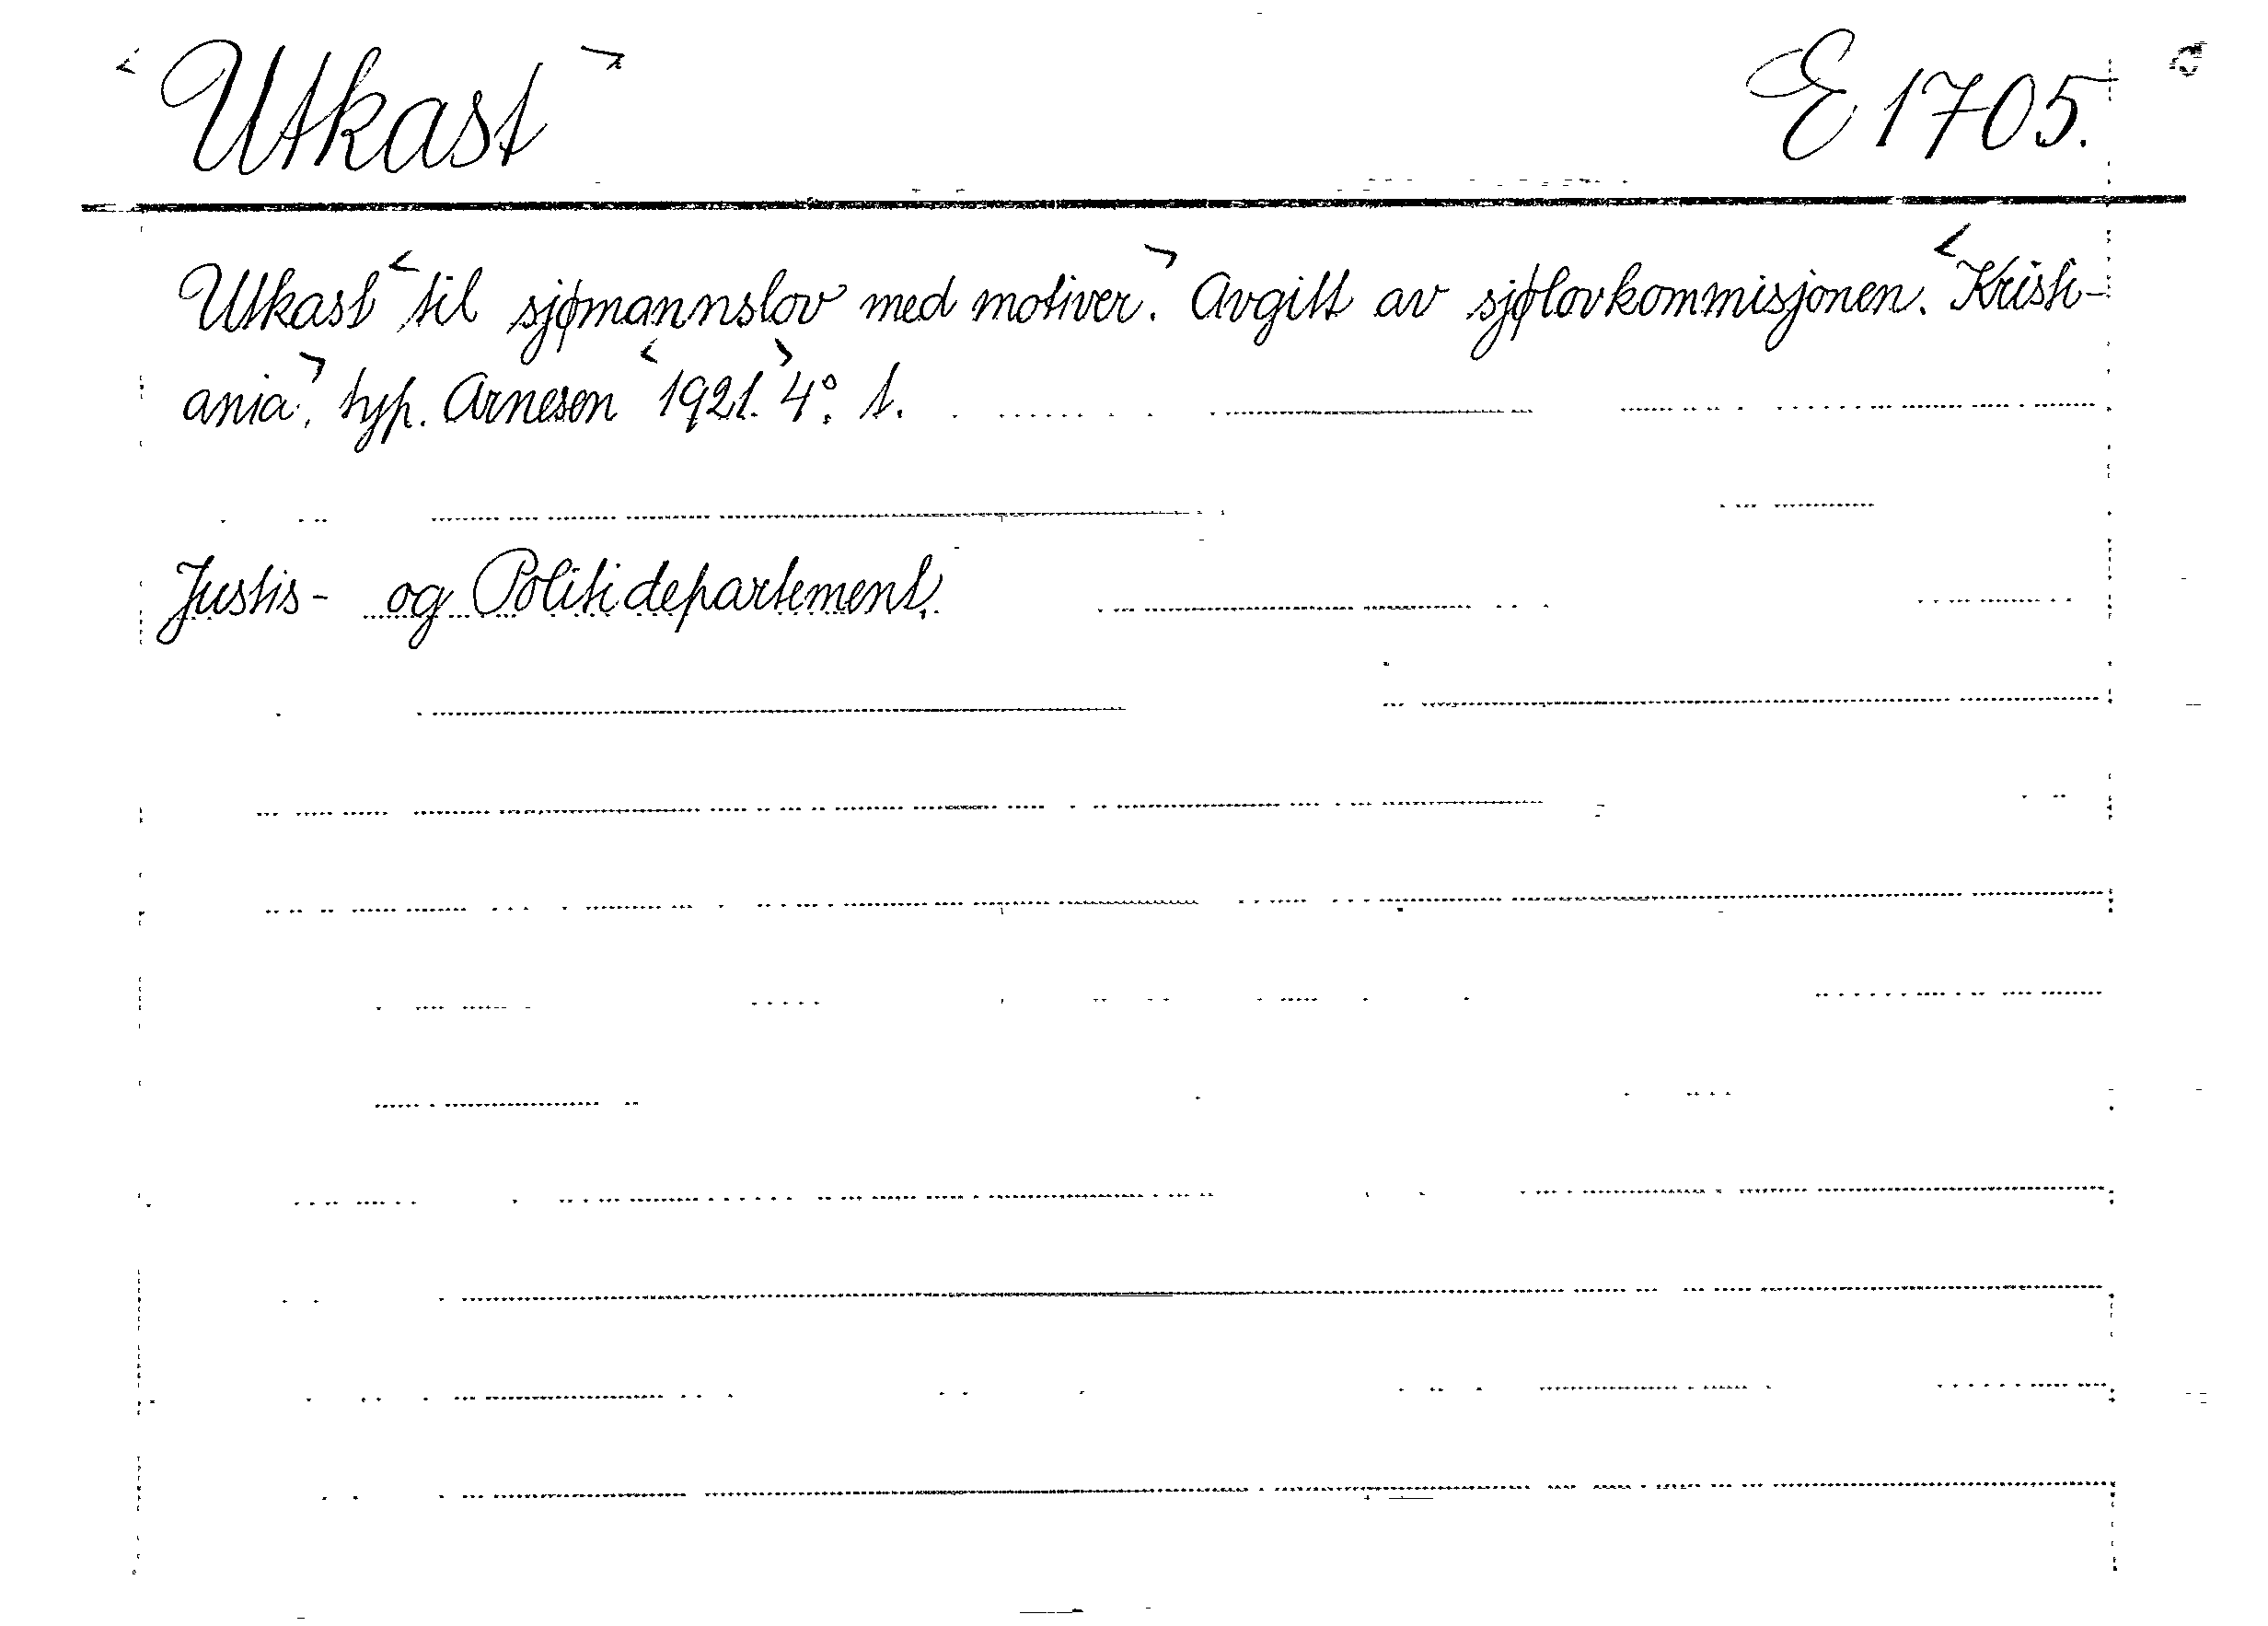 Utkast E 1705.
Utkast til sjømannslov med motiver. Avgitt av sjølovkommisjonen. Kristi-
ania, typ. Arnesen 1921. 4°. 1.
Justis- og Politidepartement.